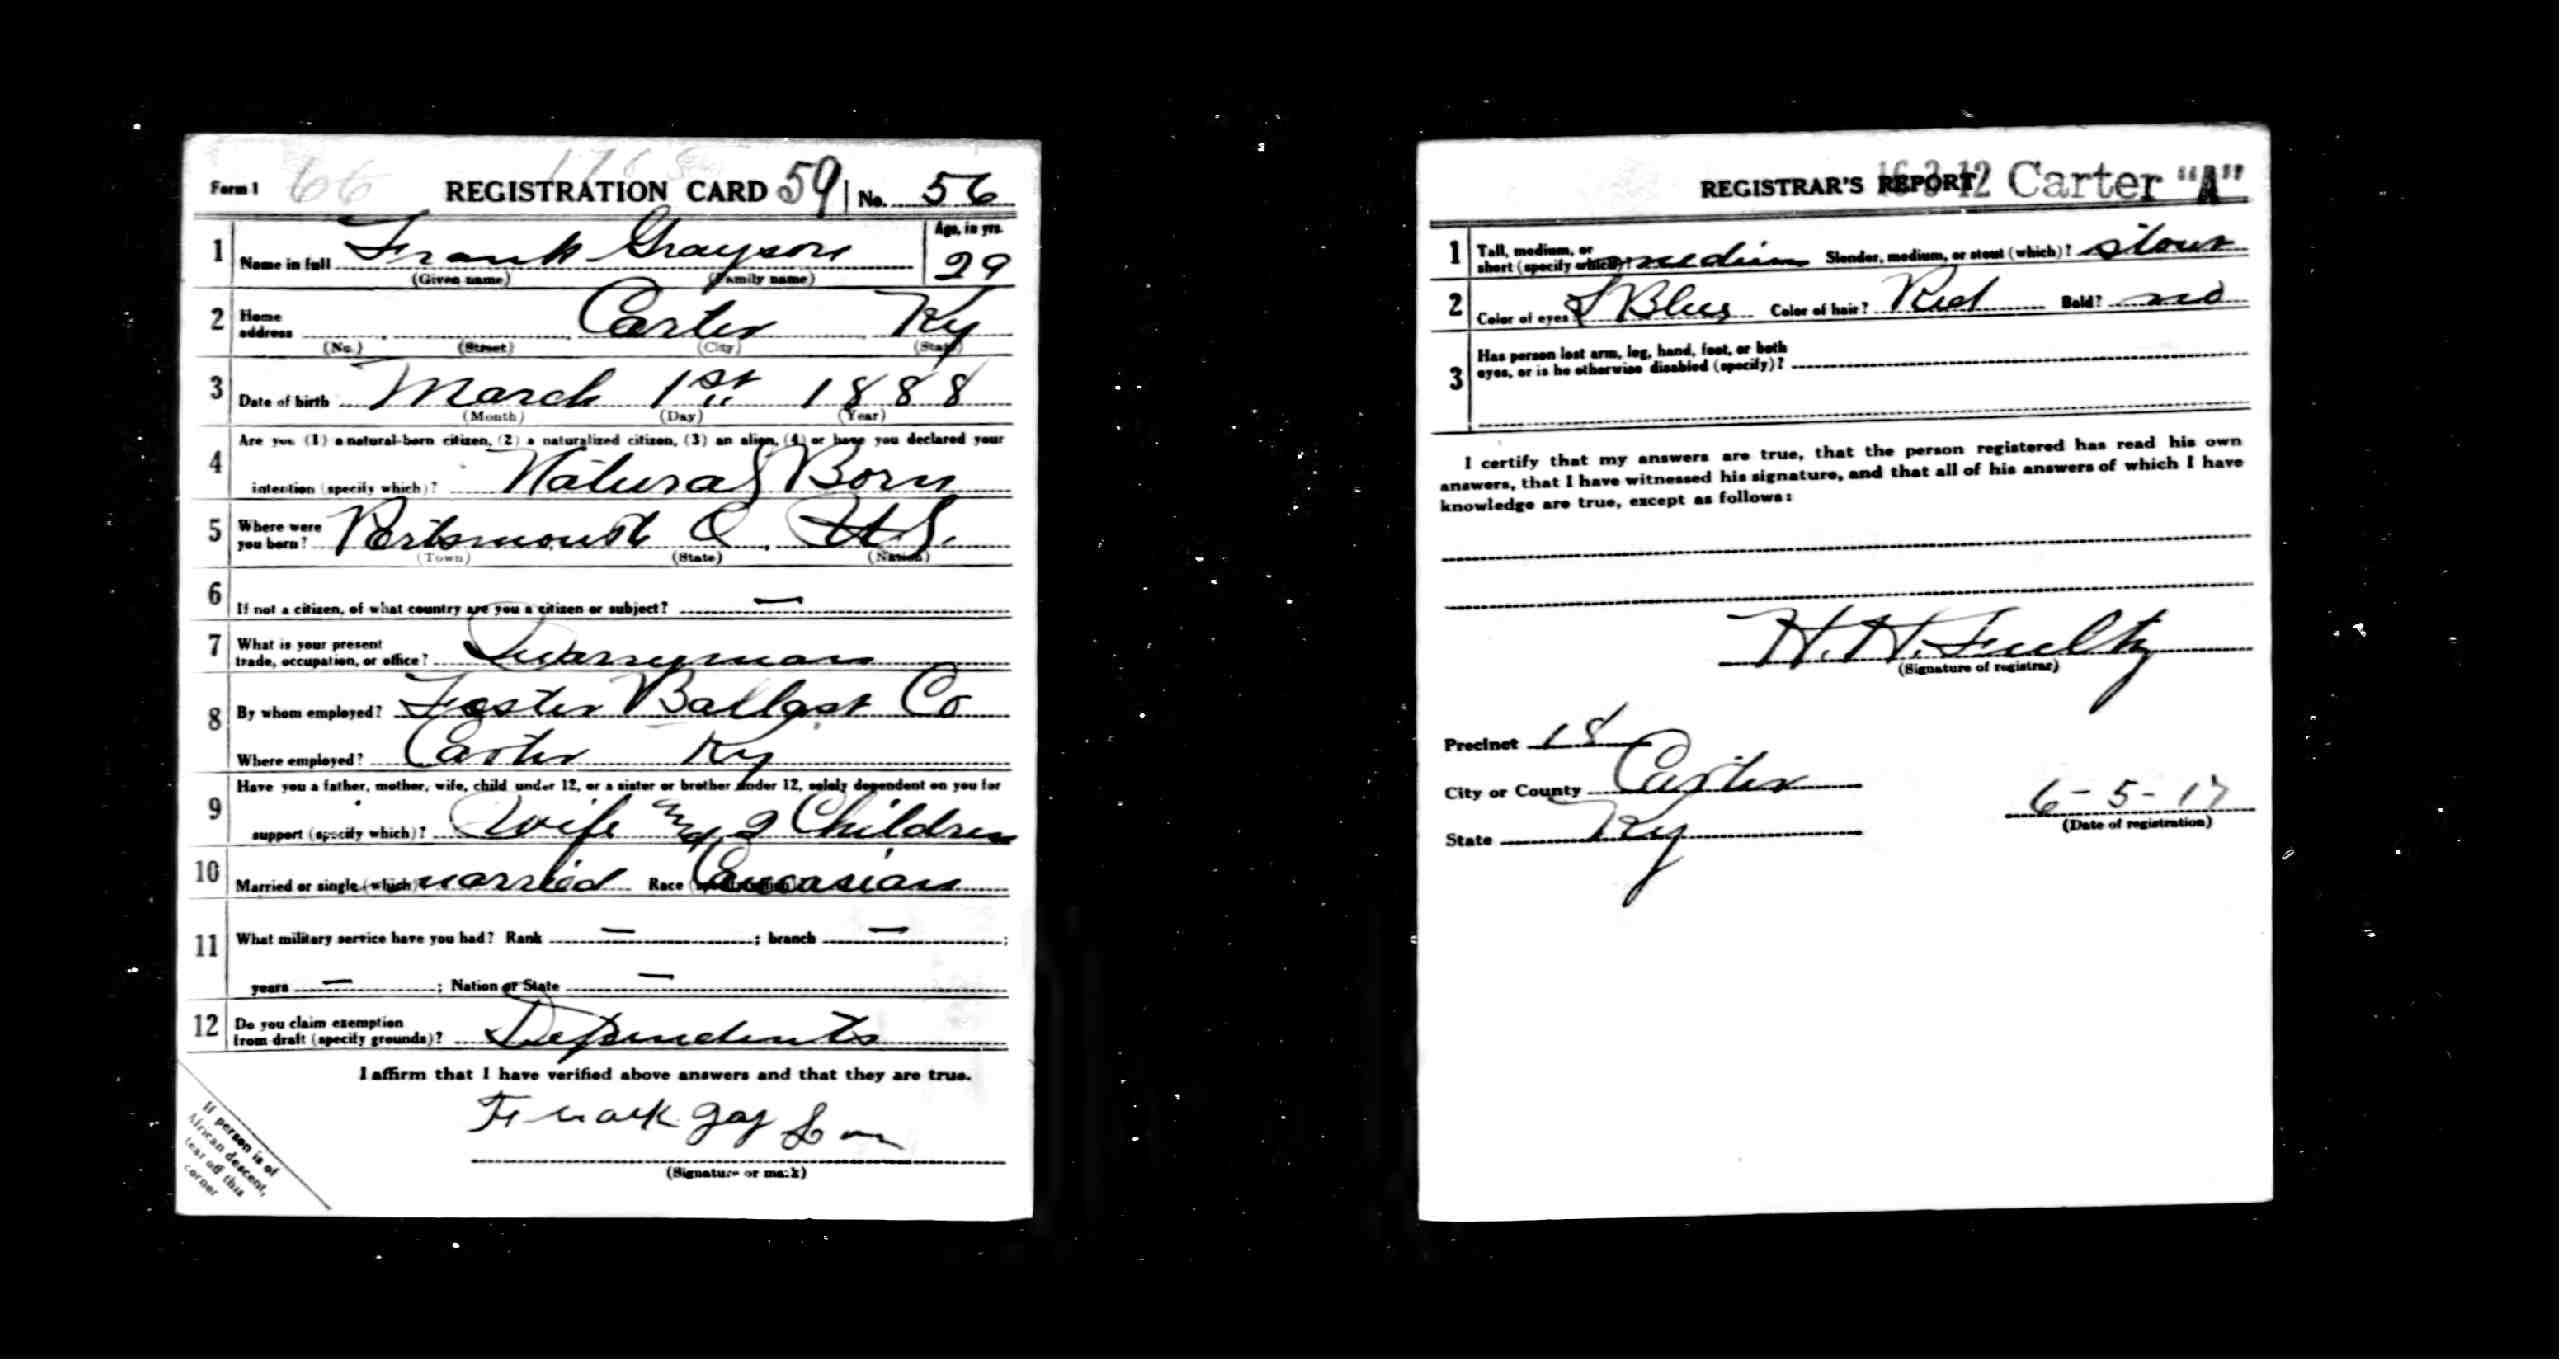 Form 1 66 176 REGISTRATION CARD 59 No. 56
1 Name in full Frank Grayson Age, in yrs. 29
(Given name) (Family name)
2 Home address Carter Ky
(No.) (Street) (City) (State)
3 Date of birth March 1st 1888
(Month) (Day) (Year)
4 Are you (1) a natural-born citizen, (2) a naturalized citizen, (3) an alien, (4) or have you declared your
intention (specify which)? Natural Born
5 Where were you born? Portsmouth O U.S.
(Town) (State) (Nation)
6 If not a citizen, of what country are you a citizen or subject? —
7 What is your present
trade, occupation, or office? Quarryman
8 By whom employed? Foster Ballast Co
Where employed? Carter Ky
9 Have you a father, mother, wife, child under 12, or a sister or brother under 12, solely dependent on you for
support (specify which)? Wife and 2 Children
10 Married or single (which) married Race Caucasian
11 What military service have you had? Rank — ; branch — ;
years — ; Nation or State —
12 Do you claim exemption
from draft (specify grounds)? Dependents
I affirm that I have verified above answers and that they are true.
Frnark gay Son
(Signature or mark)
If person is of
African descent,
tear off this
corner
REGISTRAR'S REPORT 16-3-12 Carter "A"
1 Tall, medium, or
short (specify which)? medium Slender, medium, or stout (which)? stout
2 Color of eyes L Blue Color of hair? Red Bald? no
3 Has person lost arm, leg, hand, foot, or both
eyes, or is he otherwise disabled (specify)?
I certify that my answers are true, that the person registered has read his own
answers, that I have witnessed his signature, and that all of his answers of which I have
knowledge are true, except as follows:
H. H. Fultz
(Signature of registrar)
Precinct 18
City or County Carter
State Ky
6-5-17
(Date of registration)